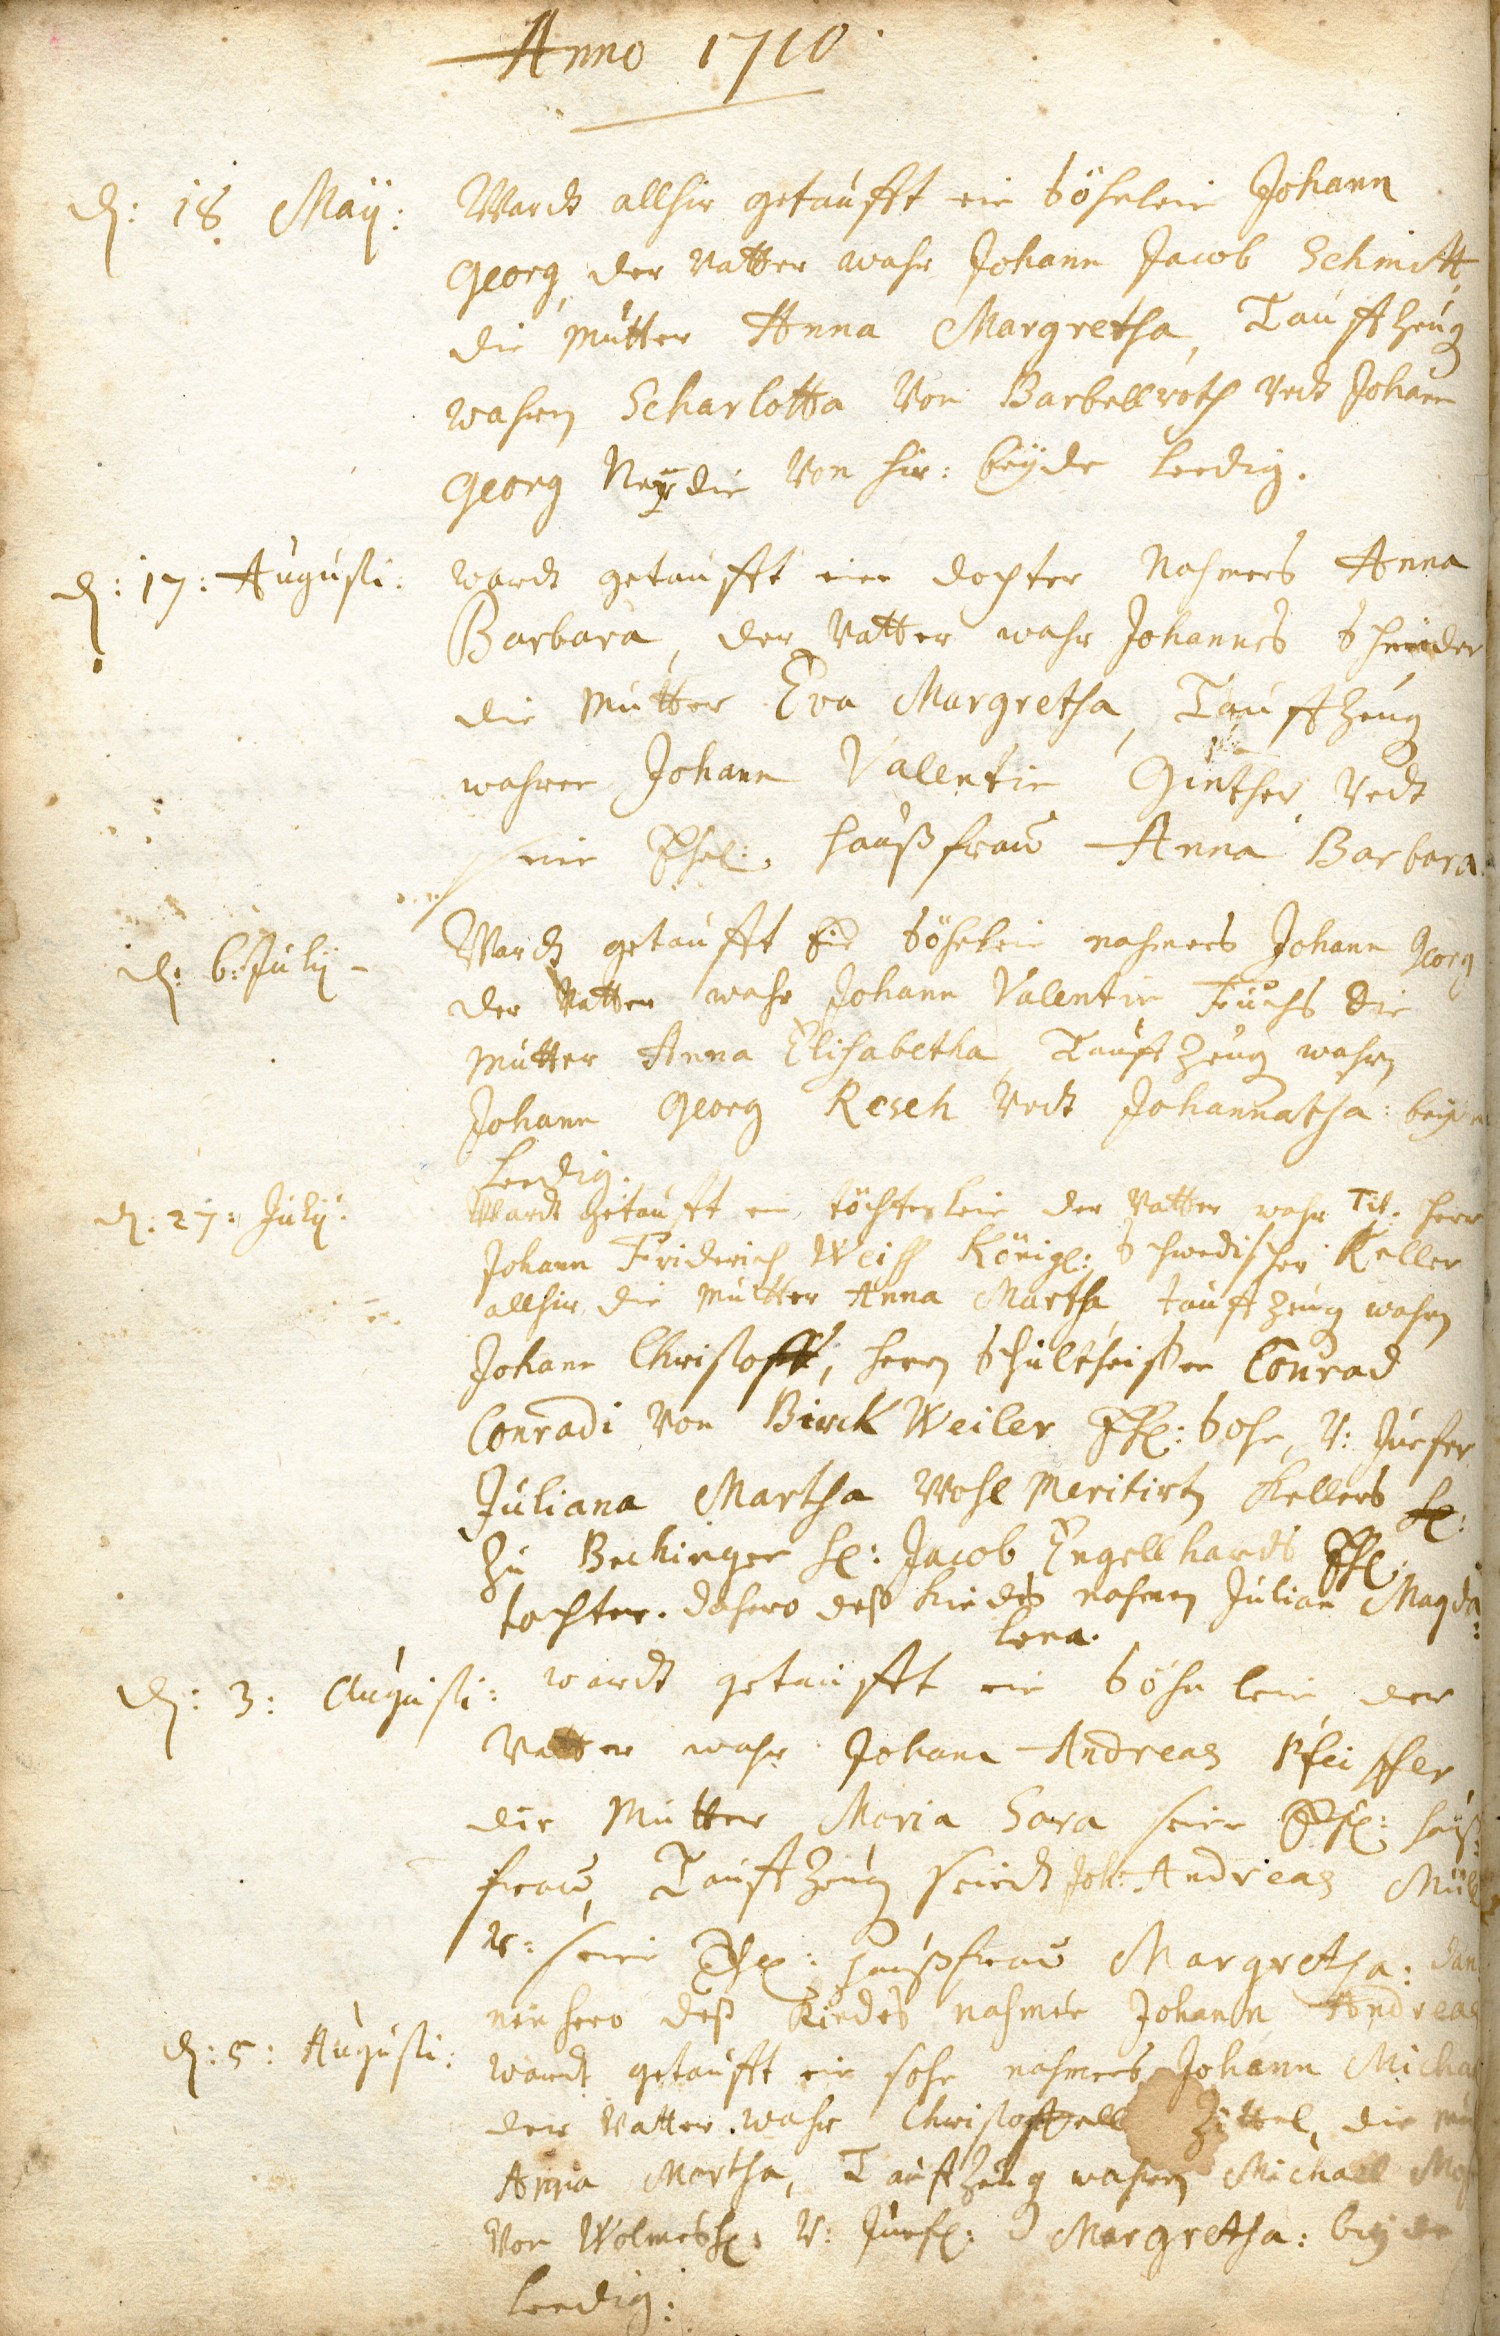 Anno 1710
d: 18. Maÿ: Wardt allhir getaufft ein Söhnlein Johann
Georg, der Vatter wahr Johann Jacob Schmitt,
die Mutter Anna Margretha, Tauffzeug
wahren Scharlotta Von Barbellroth Vndt Johann
Georg Von hir: beÿde leedig.
d: 17: Augusti: wardt getaufft eine dochter Nahmens Anna
Barbara, der Vatter wahr Johannes
die Mutter Eva Margretha, Tauffzeug
wahren Johann Valentin Ginther, Vndt
sein Ehel: haußfraw Anna Barbara
d: 6: July - Wardt getaufft Ein Söhnlein nahmens Johann Georg
der Vatter wahr Johann Valentin Fuchs die
Mutter Anna Elisabetha, Tauffzeug wahren
Johann Georg Resch Vndt Johannatha: beÿde
leedig.
d: 27: July: Wardt getaufft ein töchterlein der Vatter wahr Tit. herr
Johann Friderich Weiß Königl: Schwedischer Keller
allhir, die Mutter Anna Martha, tauffzeug wahren
Johann Christoff, herrn Schultheißen Conrad
Conradi Von Birck Weiler Ehl: Sohn, V: Jungfer
Juliana Martha Wohl Meritirten Kellers
Zu Bechingen sel: Jacob Engellhardts Ehl:
tochter. dahero deß Kindes nahmen Julian Magda:
lena.
d: 3: Augusti: wardt getaufft ein Söhnlein, der
Vatter wahr Johann Andreas Pfeiffer
die Mutter Maria Sara seine Ehl: hauß:
fraw, Tauffzeug seindt Joh: Andreas
V: seine Ehl: haußfraw Margretha: dan
nenhero deß Kindes nahmen Johann Andreas
d: 5: Augusti: wardt getaufft ein sohn nahmens Johann Michael
der Vatter wahr Christoffell Zittel, die
Anna Martha, Tauffzeug wahren Michael
Von V: Jungf: Margretha: beÿde
leedig: